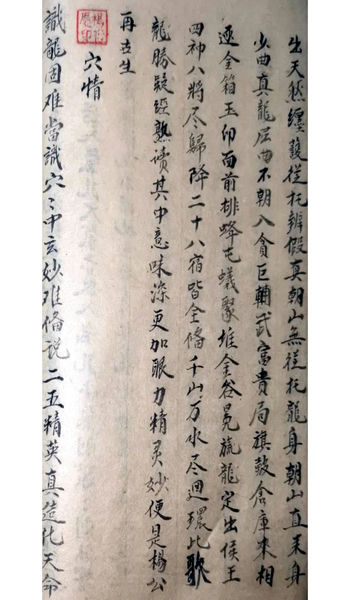 出天然纒護從托辨假真朝山無從托龍身朝山直来身
少曲真龍屈曲不朝入貪巨輔武富貴局旗鼓倉庫来相
逐金箱玉印面前排蜂屯蟻聚堆金谷晃旒龍定出侯王
四神八將尽歸降二十八宿皆全俻千山万水尽迴環此歌
龍勝疑經熟读其中意味深更加眼力精灵妙便是楊公
再去生
穴情
識龍固难當識穴〻中玄妙难俻说二五精英真造化天命